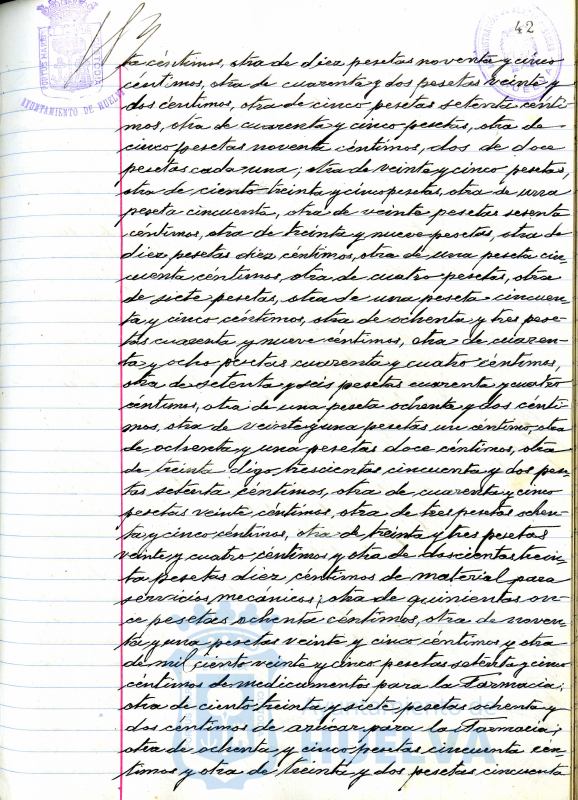 42
AYUNTAMIENTO DE HUELVA
ta céntimos, otra de diez pesetas noventa y cinco
céntimos, otra de cuarenta y dos pesetas veinte y
dos centimos, otra de cinco pesetas setenta cénti
mos, otra de cuarenta y cinco pesetas, otra de
cinco pesetas noventa céntimos, dos de doce
pesetas cada una; otra de veinte y cinco pesetas,
otra de ciento treinta y cinco pesetas, otra de una
peseta cincuenta, otra de veinte pesetas sesenta
céntimos, otra de treinta y nueve pesetas, otra de
diez pesetas diez céntimos, otra de una peseta cin
cuenta céntimos, otra de cuatro pesetas, otra
de siete pesetas, otra de una peseta cincuen
ta y cinco céntimos, otra de ochenta y tres pese
tas cuarenta y nueve céntimos, otra de cuaren
ta y ocho pesetas cuarenta y cuatro céntimos,
otra de setenta y seis pesetas cuarenta y cuatro
céntimos, otra de una peseta ochenta y dos cénti
mos, otra de veinte y una pesetas un céntimo, otra
de ochenta y una pesetas doce céntimos, otra
de treinta digo trescientas cincuenta y dos pese
tas setenta céntimos, otra de cuarenta y cinco
pesetas veinte céntimos, otra de tres pesetas ochen
ta y cinco céntimos, otra de treinta y tres pesetas
veinte y cuatro céntimos y otra de doscientas trein
ta pesetas diez céntimos de material para
servicios mecánicos; otra de quinientas on
ce pesetas ochenta céntimos, otra de noven
ta y una pesetas veinte y cinco céntimos y otra
de mil ciento veinte y cinco pesetas setenta y cinco
céntimos de medicamentos para la Farmacia;
otra de ciento treinta y siete pesetas ochenta y
dos céntimos de azúcar para la Farmacia;
otra de ochenta y cinco pesetas cincuenta cén
timos y otra de treinta y dos pesetas cincuenta
HUELVA